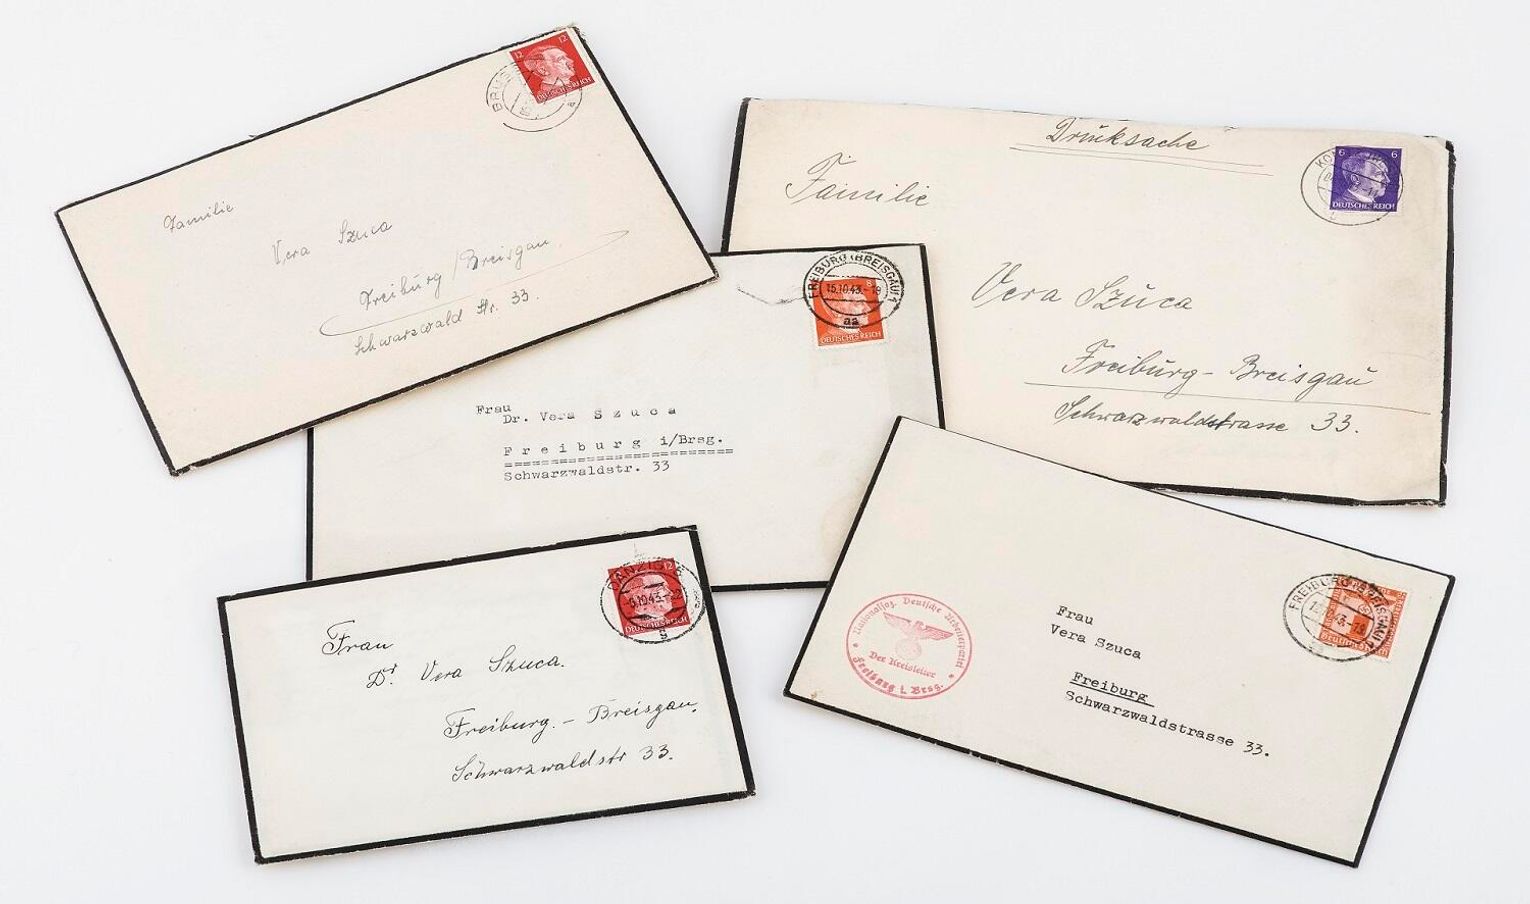 12 12
DEUTSCHES REICH
Familie
Vera Szuca
Freiburg/Breisgau
Schwarzwald Str. 33.
Drucksache
6 6
DEUTSCHES REICH
Familie
Vera Szuca
Freiburg-Breisgau
Schwarzwaldstrasse 33.
FREIBURG (BREISGAU) 1
15.10.43.-19
aa
DEUTSCHES REICH
Frau
Dr. Vera Szuca
Freiburg i/Brsg.
Schwarzwaldstr. 33
DANZIG
12
DEUTSCHES REICH
Frau
Dr Vera Szuca.
Freiburg.-Breisgau.
Schwarzwaldstr 33.
FREIBURG (BREISGAU)
Nationalsoz. Deutsche Arbeiterpartei
Der Kreisleiter
Freiburg i. Brsg.
Frau
Vera Szuca
Freiburg
Schwarzwaldstrasse 33.